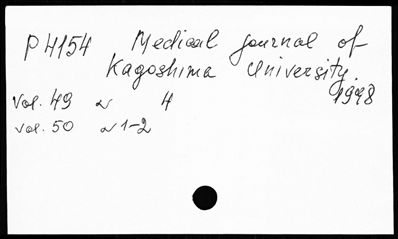 P4154 Medical journal of
Kagoshima University.
vol. 49 N 4 1998
vol. 50 N 1-2